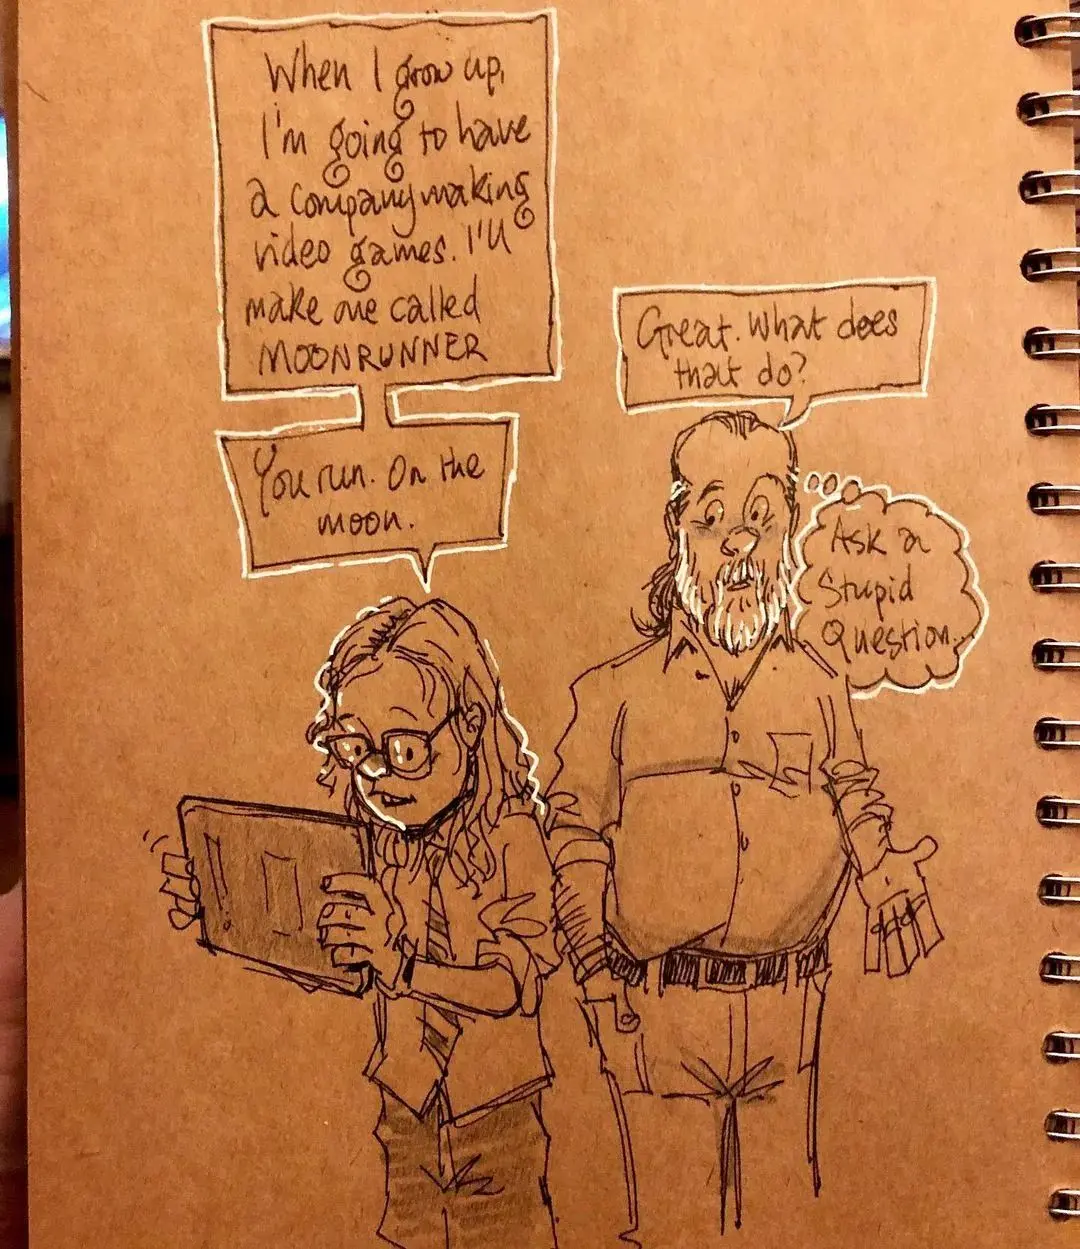 When I grow up,
I'm going to have
a company making
video games. I'll
make one called
MOONRUNNER
Great. What does
that do?
You run. On the
moon.
Ask a
Stupid
Question..